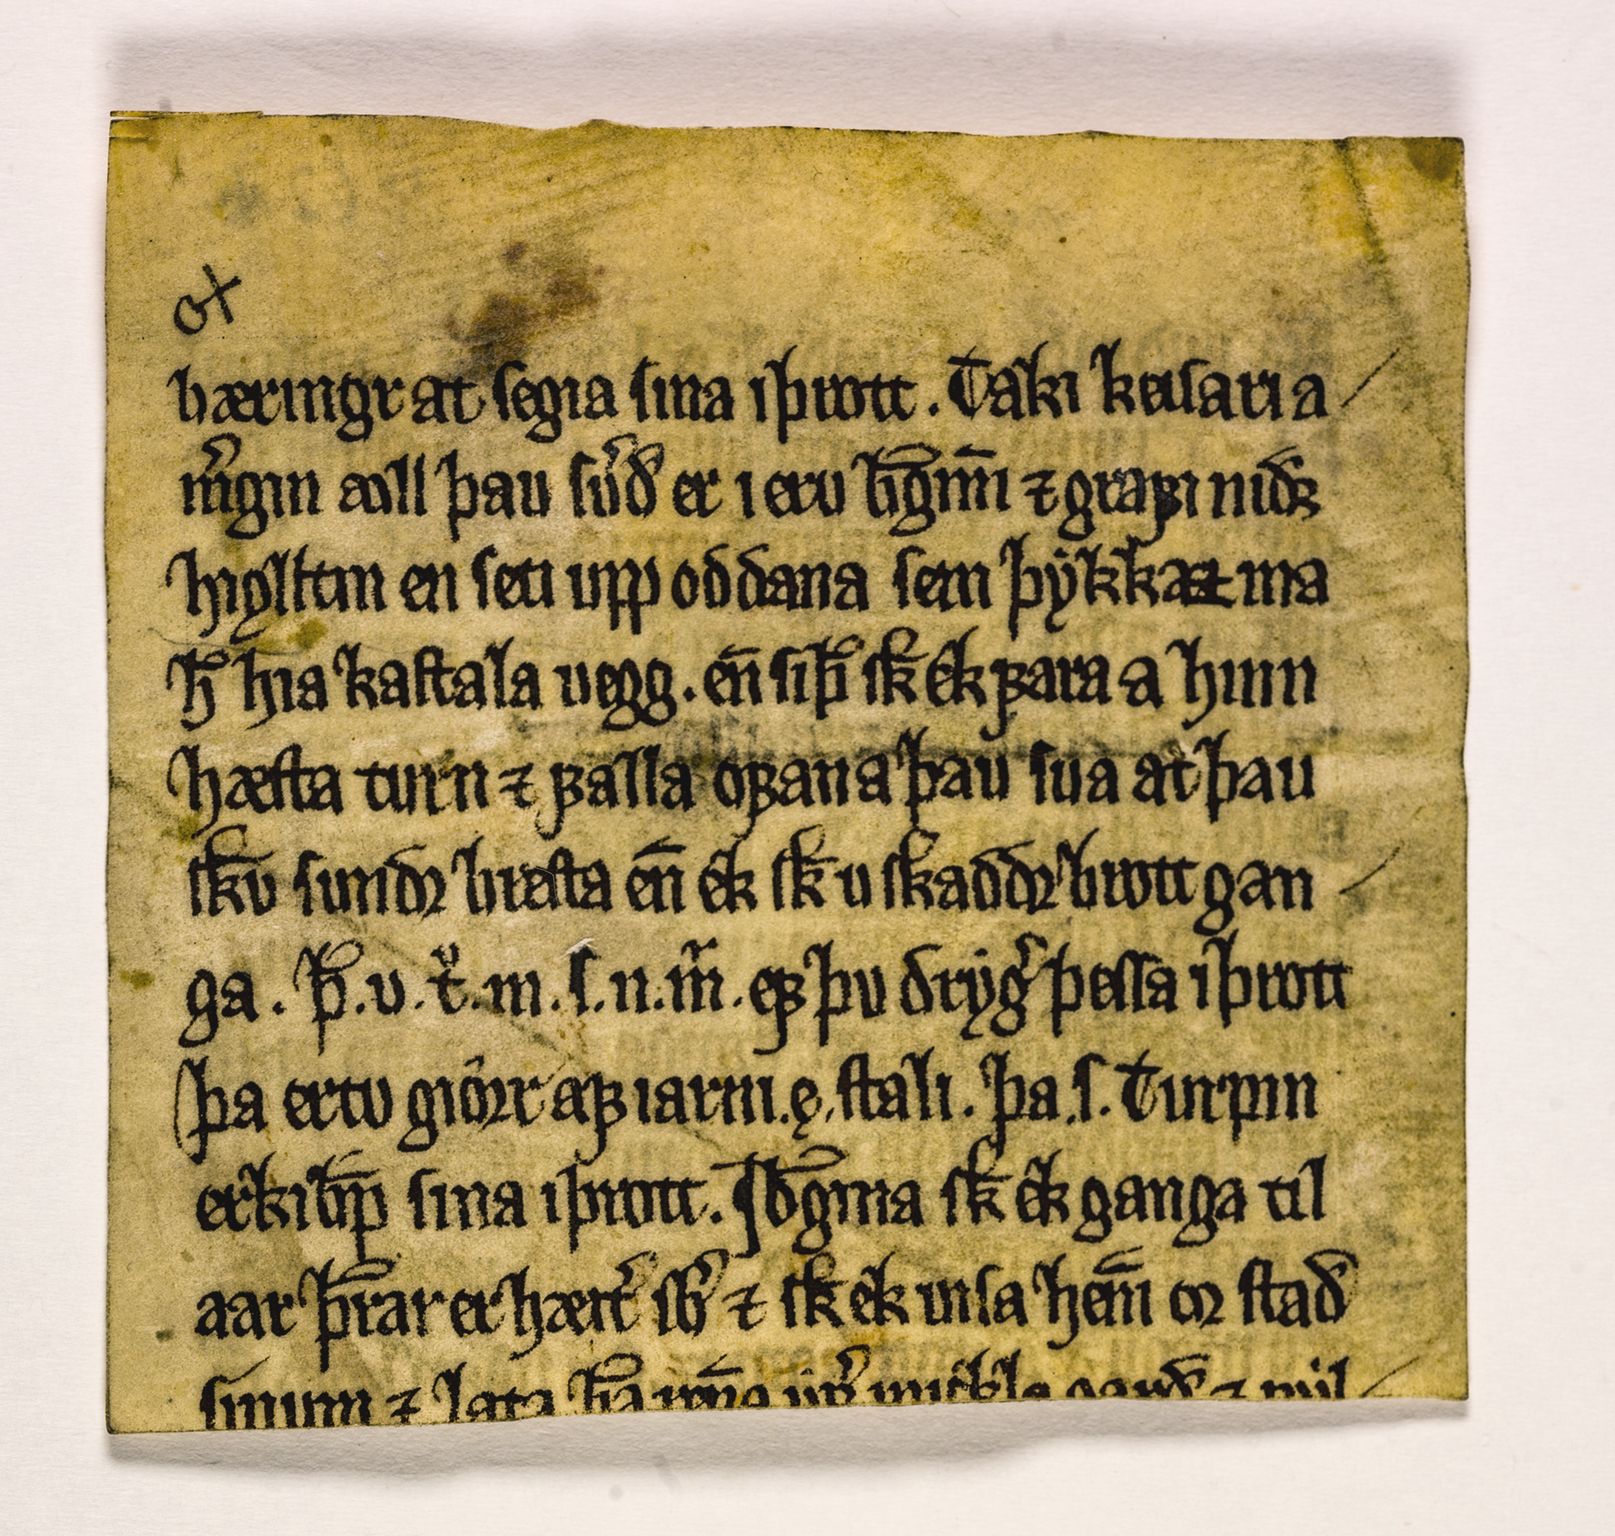 bæringr at segia sina iþrott. Taki keisari a
mͦgin aoll þau suͦð er i eru b̅gīni ⁊ grafi niðꝛ
hiolltin en seti upp oddana sem þẏkkaz ma
h̅ hia kastala uegg. en̅ siþ̅ sk̅ ek fara a hinn
hæsta turn ⁊ falla ofan a þau sua at þau
sk̅v sundꝛ bresta en̅ ek sk̅ u skaddꝛ brott gan
ga. þ̅.v.t͛.m.s.n.m̅. ef þu drẏgͥ þessa iþrott
þa ertu giorr af iarni.ę.stali. þa.s. Turpin
erkib̅p sina iþrott. J b̅gina sk̅ ek ganga til
aar þr̅ar er hærͥ sb̅ ⁊ sk̅ ek uisa hen̅i oꝛ stað
sinum ⁊ lata h̅a